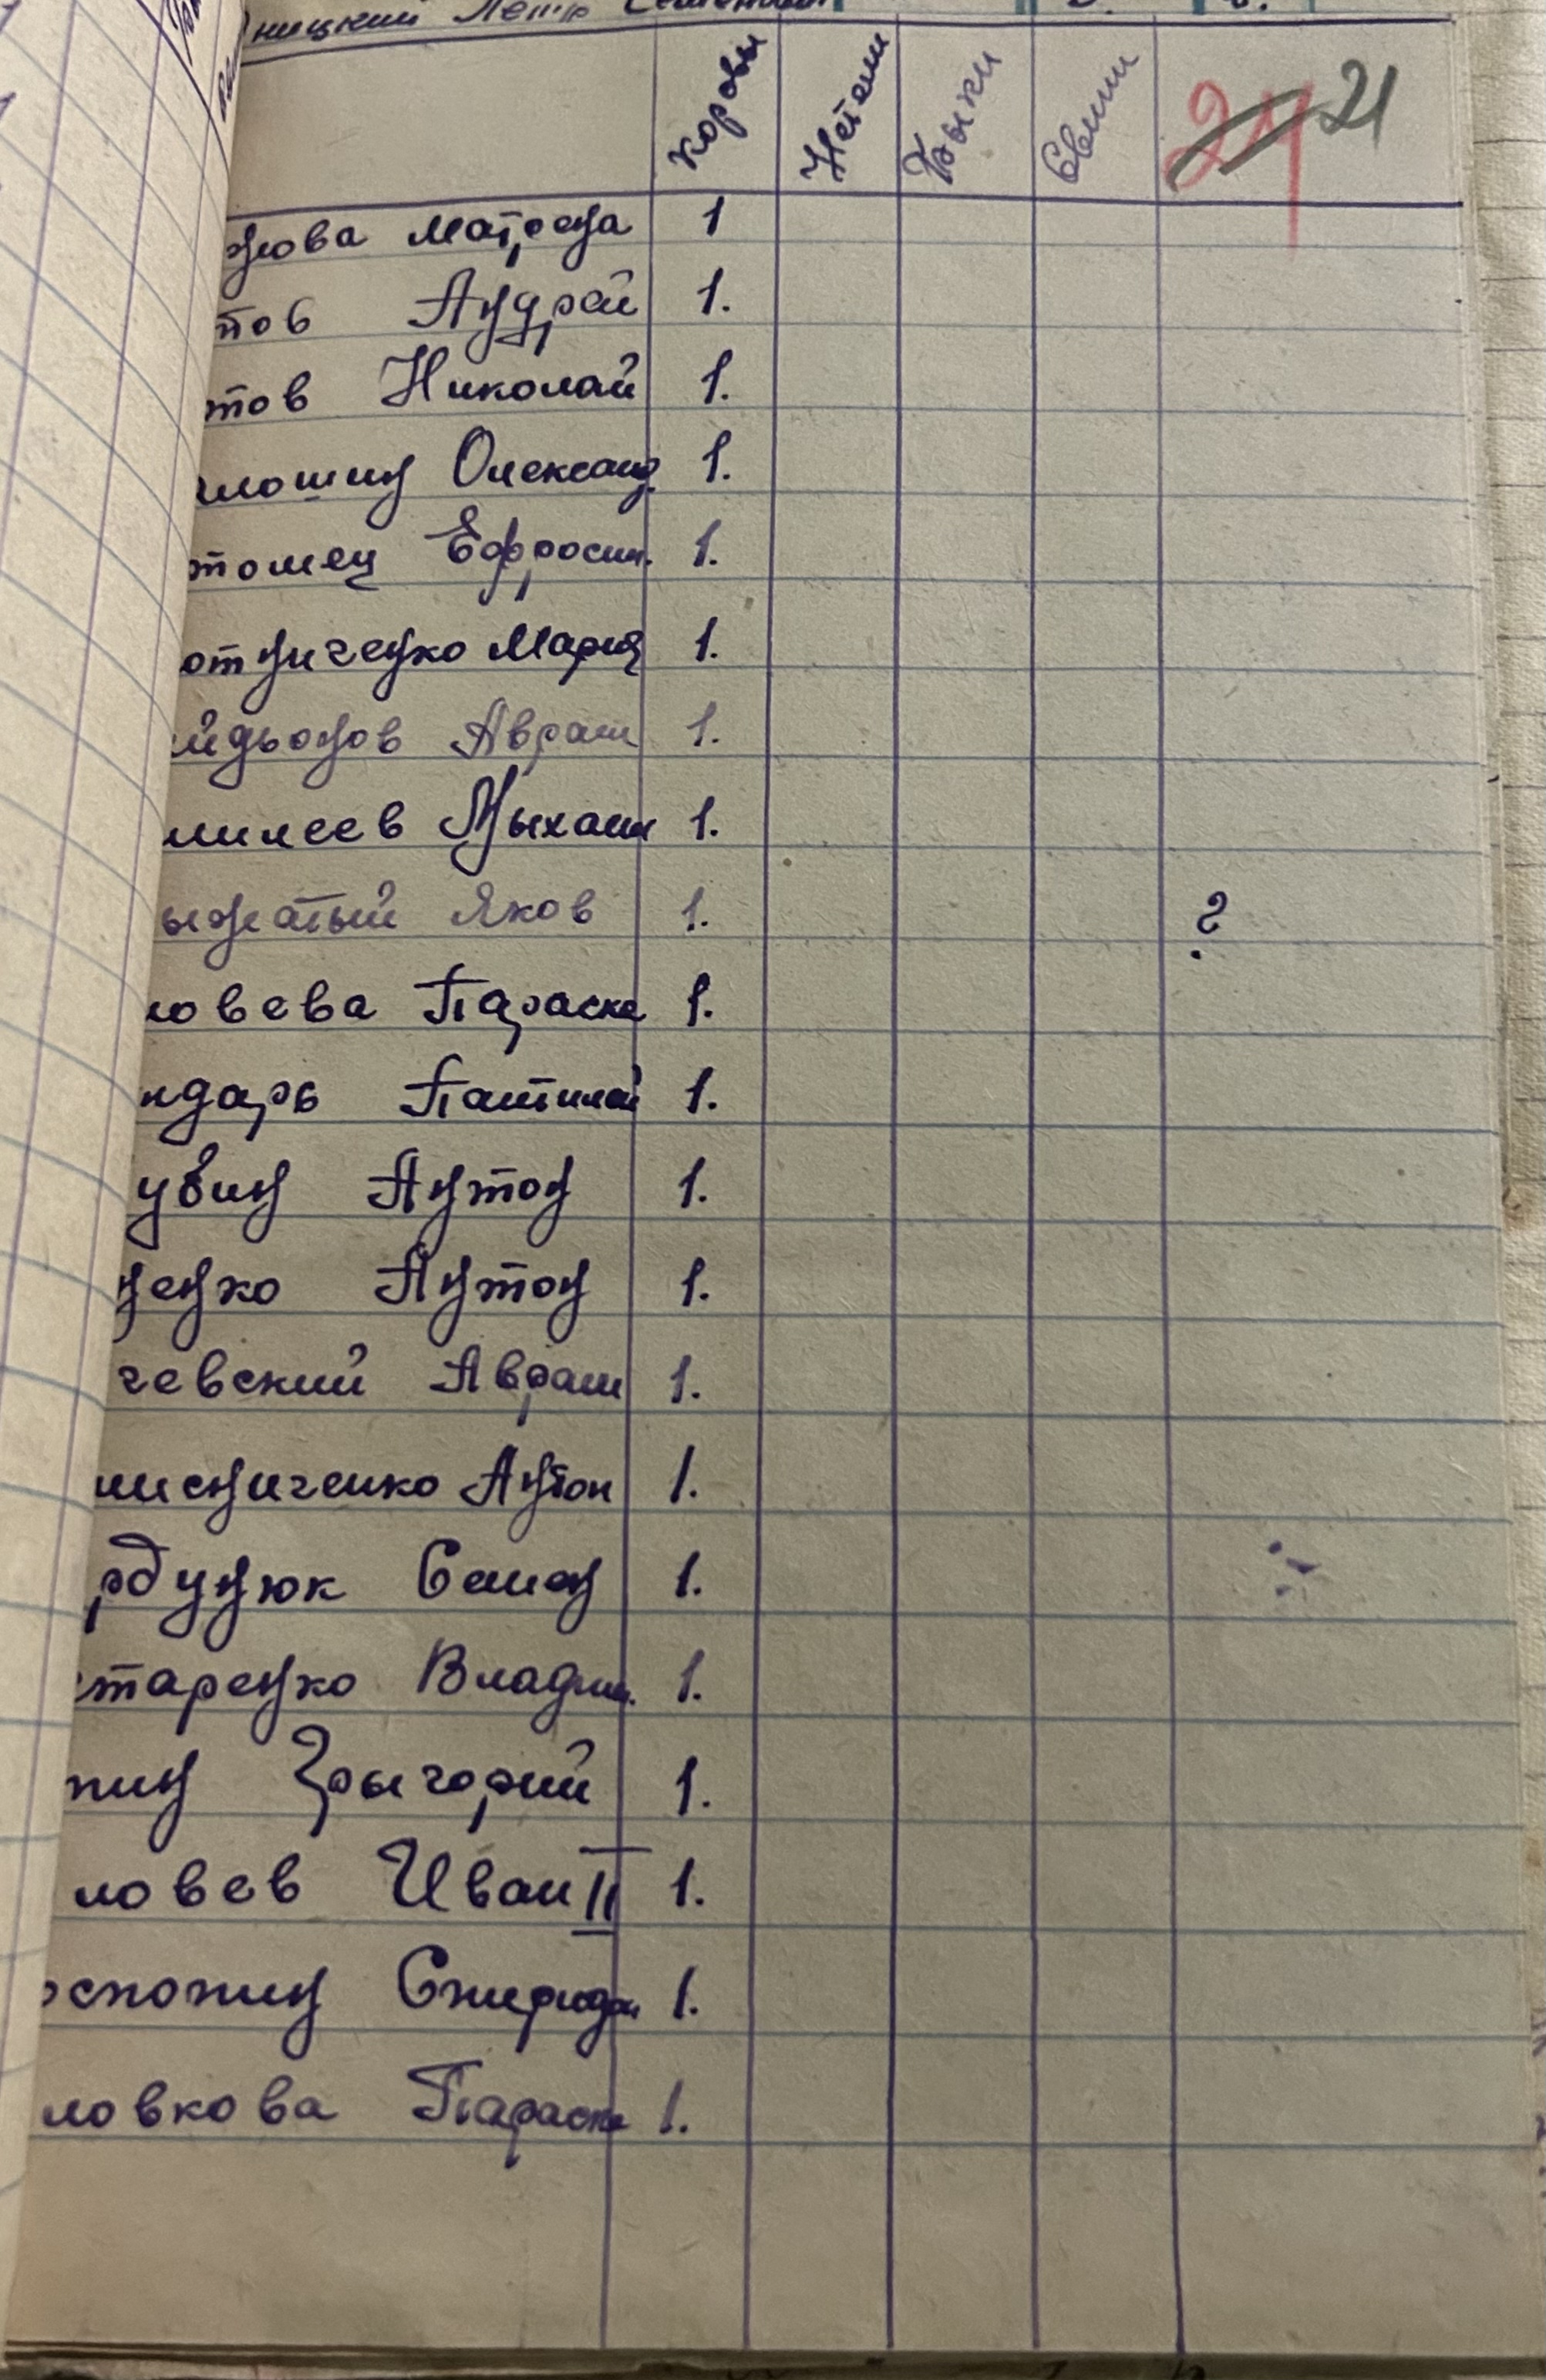 ницкий Петр Семенович
Коровы Нетели Быки Свиньи 24 21
нова Матрена 1
тов Андрей 1.
тов Николай 1.
лошин Олександ. 1.
томец Ефросин. 1.
отниченко Мария 1.
йдьонов Аврам 1.
милеев Мыхаил 1.
ыжатый Яков 1. ?
ловева Параска 1.
ндарь Пантилей 1.
увин Антон 1.
ненко Антон 1.
чевский Аврам 1.
мисниченко Антон 1.
рдунюк Семен 1.
старенко Владим. 1.
пин Грыгорий 1.
ловев Иван II 1.
оспопин Спиридон 1.
ловкова Параска 1.